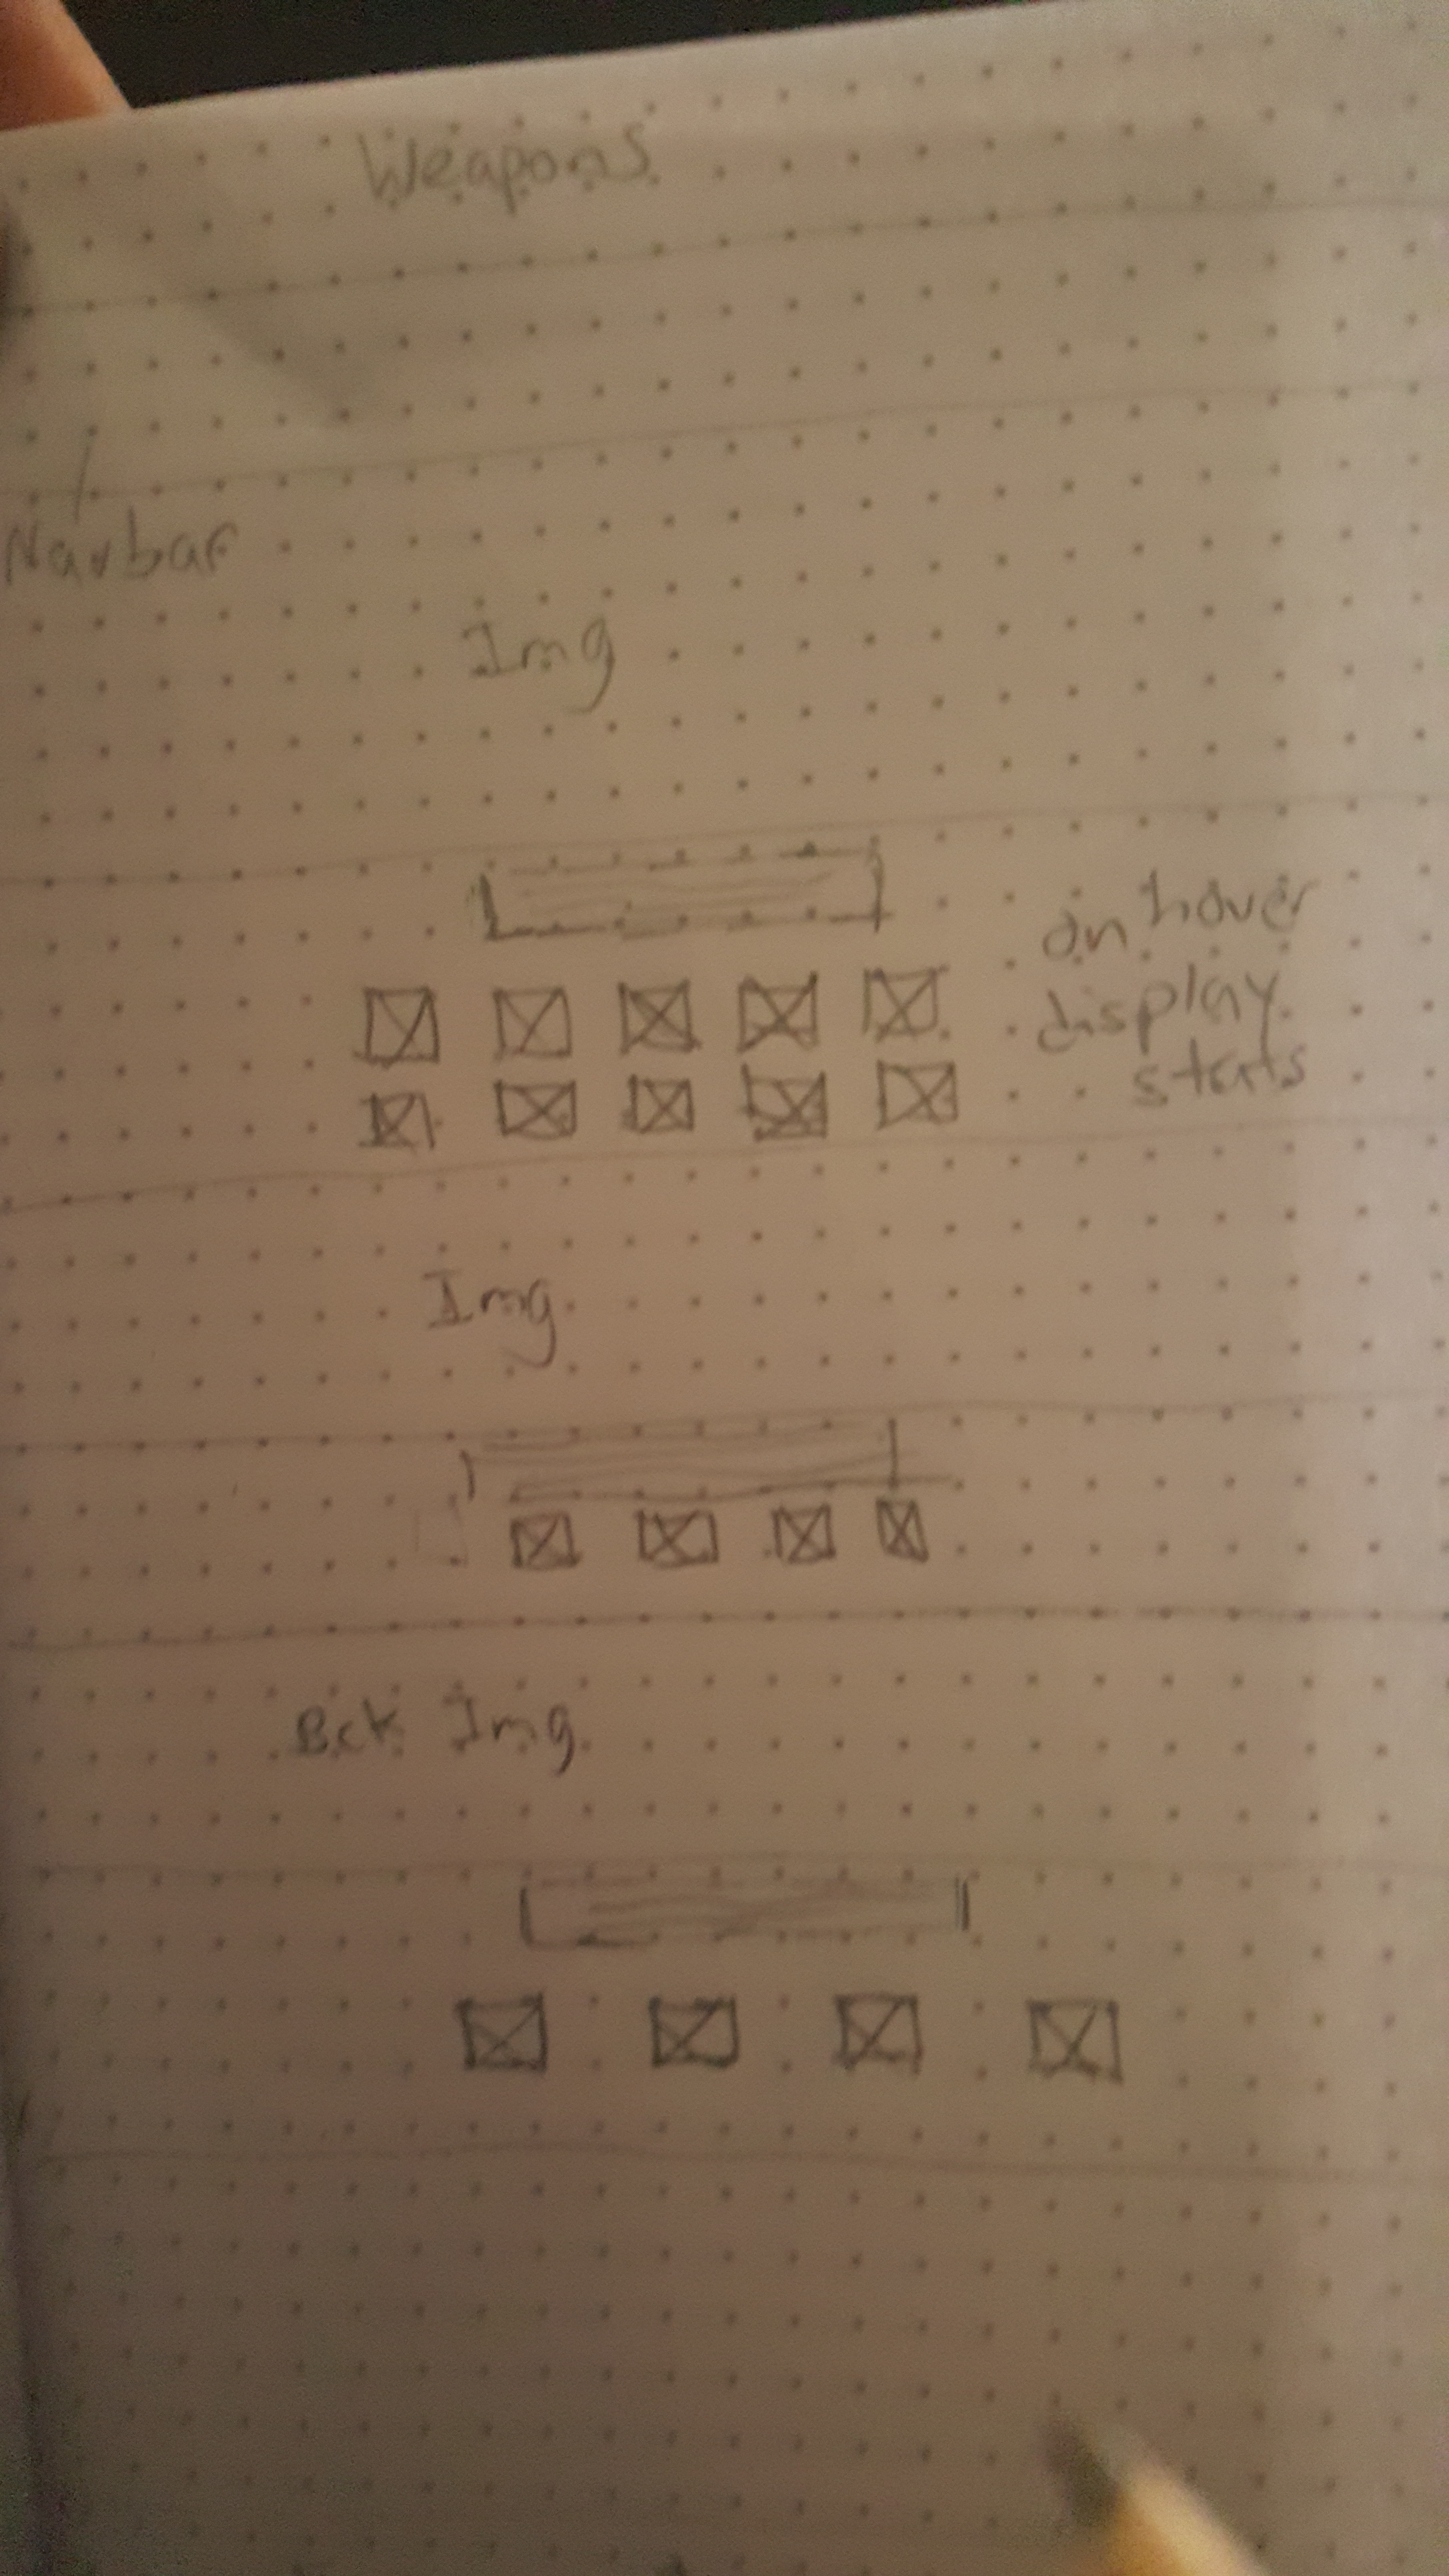 Weapons
Navbar
Img
on hover
display
stats
Img
Bck Img